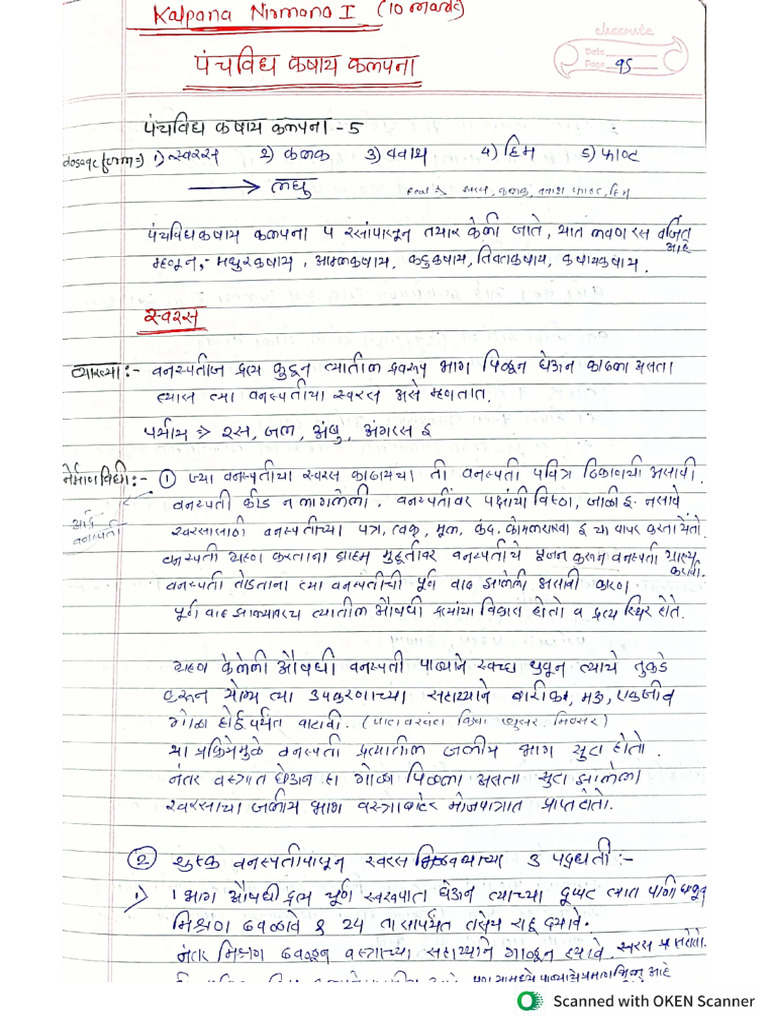 Kalpana Nirmana I (10 marks)
classmate
Date
Page 95
पंचविध कषाय कल्पना
पंचविध कषाय कल्पना - 5
dosage forms 1) स्वरस 2) कल्क 3) क्वाथ 4) हिम 5) फाण्ट
→ लघु
स्वरस, कल्क, क्वाथ फाण्ट, हिम
पंचविध कषाय कल्पना ५ रसांपासून तयार केली जाते, यात लवण रस वर्जित आहे
म्हणून,- मधुरकषाय, आम्लकषाय, कटुकषाय, तिक्तकषाय, कषायकषाय.
स्वरस
व्याख्या :- वनस्पतीज द्रव्य कुटून त्यातील द्रवरूप भाग पिळून घेऊन काढला असता
त्यास त्या वनस्पतीचा स्वरस असे म्हणतात.
पर्याय ⇒ रस, जल, अंबु, अंगरस इ
निर्माणविधी :- ① ज्या वनस्पतीचा स्वरस काढायचा ती वनस्पती पवित्र ठिकाणची असावी.
वनस्पती कीड न लागलेली, वनस्पतींवर पक्षांची विष्ठा, जाळी इ. नसावे
आर्द्र वनस्पती
स्वरसासाठी वनस्पतीच्या पत्र, त्वक्, मूळ, कंद, कोमलशाखा इ चा वापर करता येतो.
वनस्पती ग्रहण करताना ब्राह्म मुहूर्तावर वनस्पतीचे पूजन करून वनस्पती ग्राह्य करावी.
वनस्पती तोडताना त्या वनस्पतीची पूर्ण वाढ झालेली असावी कारण
पूर्ण वाढ झाल्यावरच त्यातील औषधी द्रव्यांचा विकास होतो व द्रव्य स्थिर होते.
ग्रहण केलेली औषधी वनस्पती पाण्याने स्वच्छ धुवून त्याचे तुकडे
करून योग्य त्या उपकरणाच्या सहाय्याने बारीक, मऊ, एकजीव
गोळा होईपर्यंत वाटावी. (पाटा वरवंटा किंवा ज्युसर, मिक्सर)
या प्रक्रियेमुळे वनस्पती द्रव्यातील जलीय भाग सुटा होतो.
नंतर वस्त्रात घेऊन हा गोळा पिळला असता सुटा झालेला
स्वरसाचा जलीय भाग वस्त्राबाहेर भोजपात्रात प्राप्त होतो.
② शुष्क वनस्पतीपासून स्वरस मिळवण्याच्या 3 पद्धती :-
1) 1 भाग औषधी द्रव्य चूर्ण स्वरूपात घेऊन त्याच्या दुप्पट त्यात पाणी घालून
मिश्रण ढवळावे व 24 तासापर्यंत तसेच राहू द्यावे.
नंतर मिश्रण ढवळून वस्त्राच्या सहाय्याने गाळून घ्यावे. स्वरस प्राप्त होतो.
Scanned with OKEN Scanner